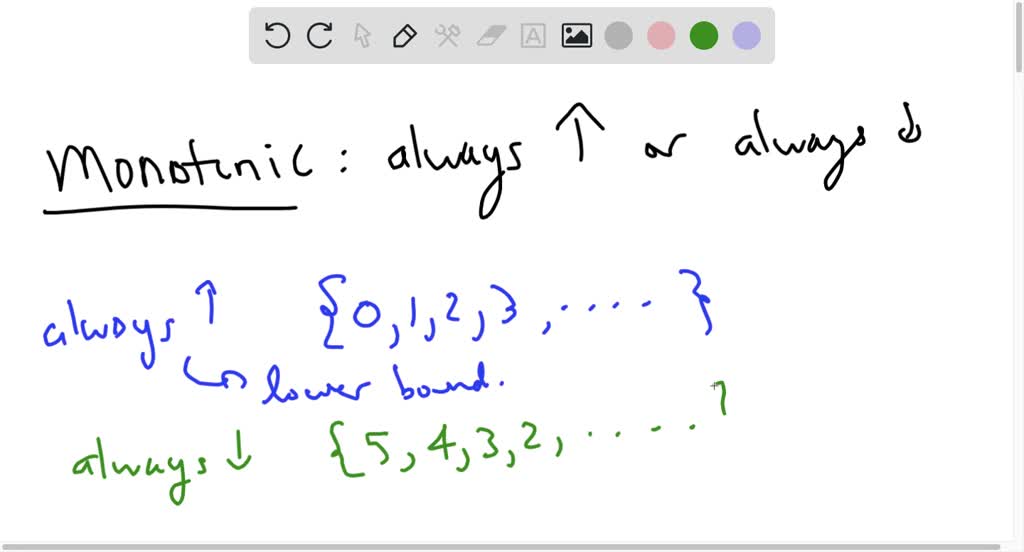 Monotonic : always ↑ or always ↓
always ↑ {0, 1, 2, 3, .... }
↳ lower bound.
always ↓ {5, 4, 3, 2, ....